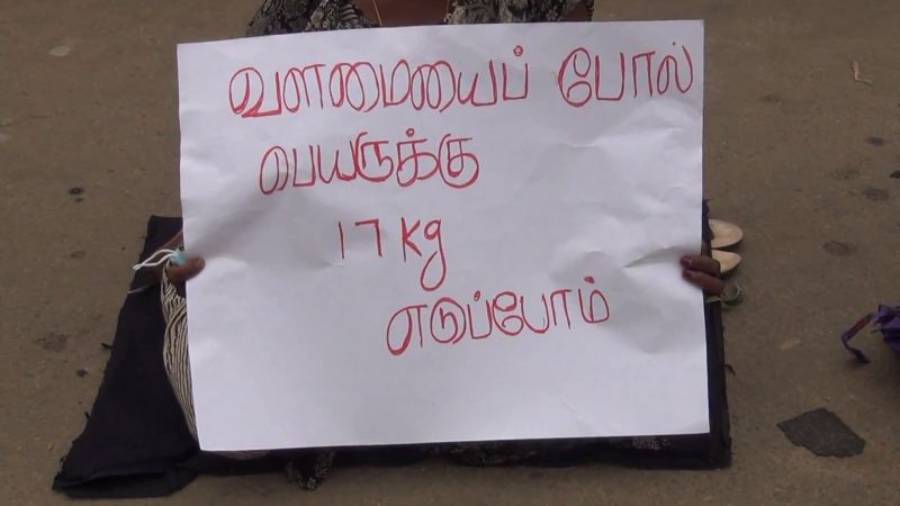 வளமையைப் போல்
பெயருக்கு
17 kg
எடுப்போம்